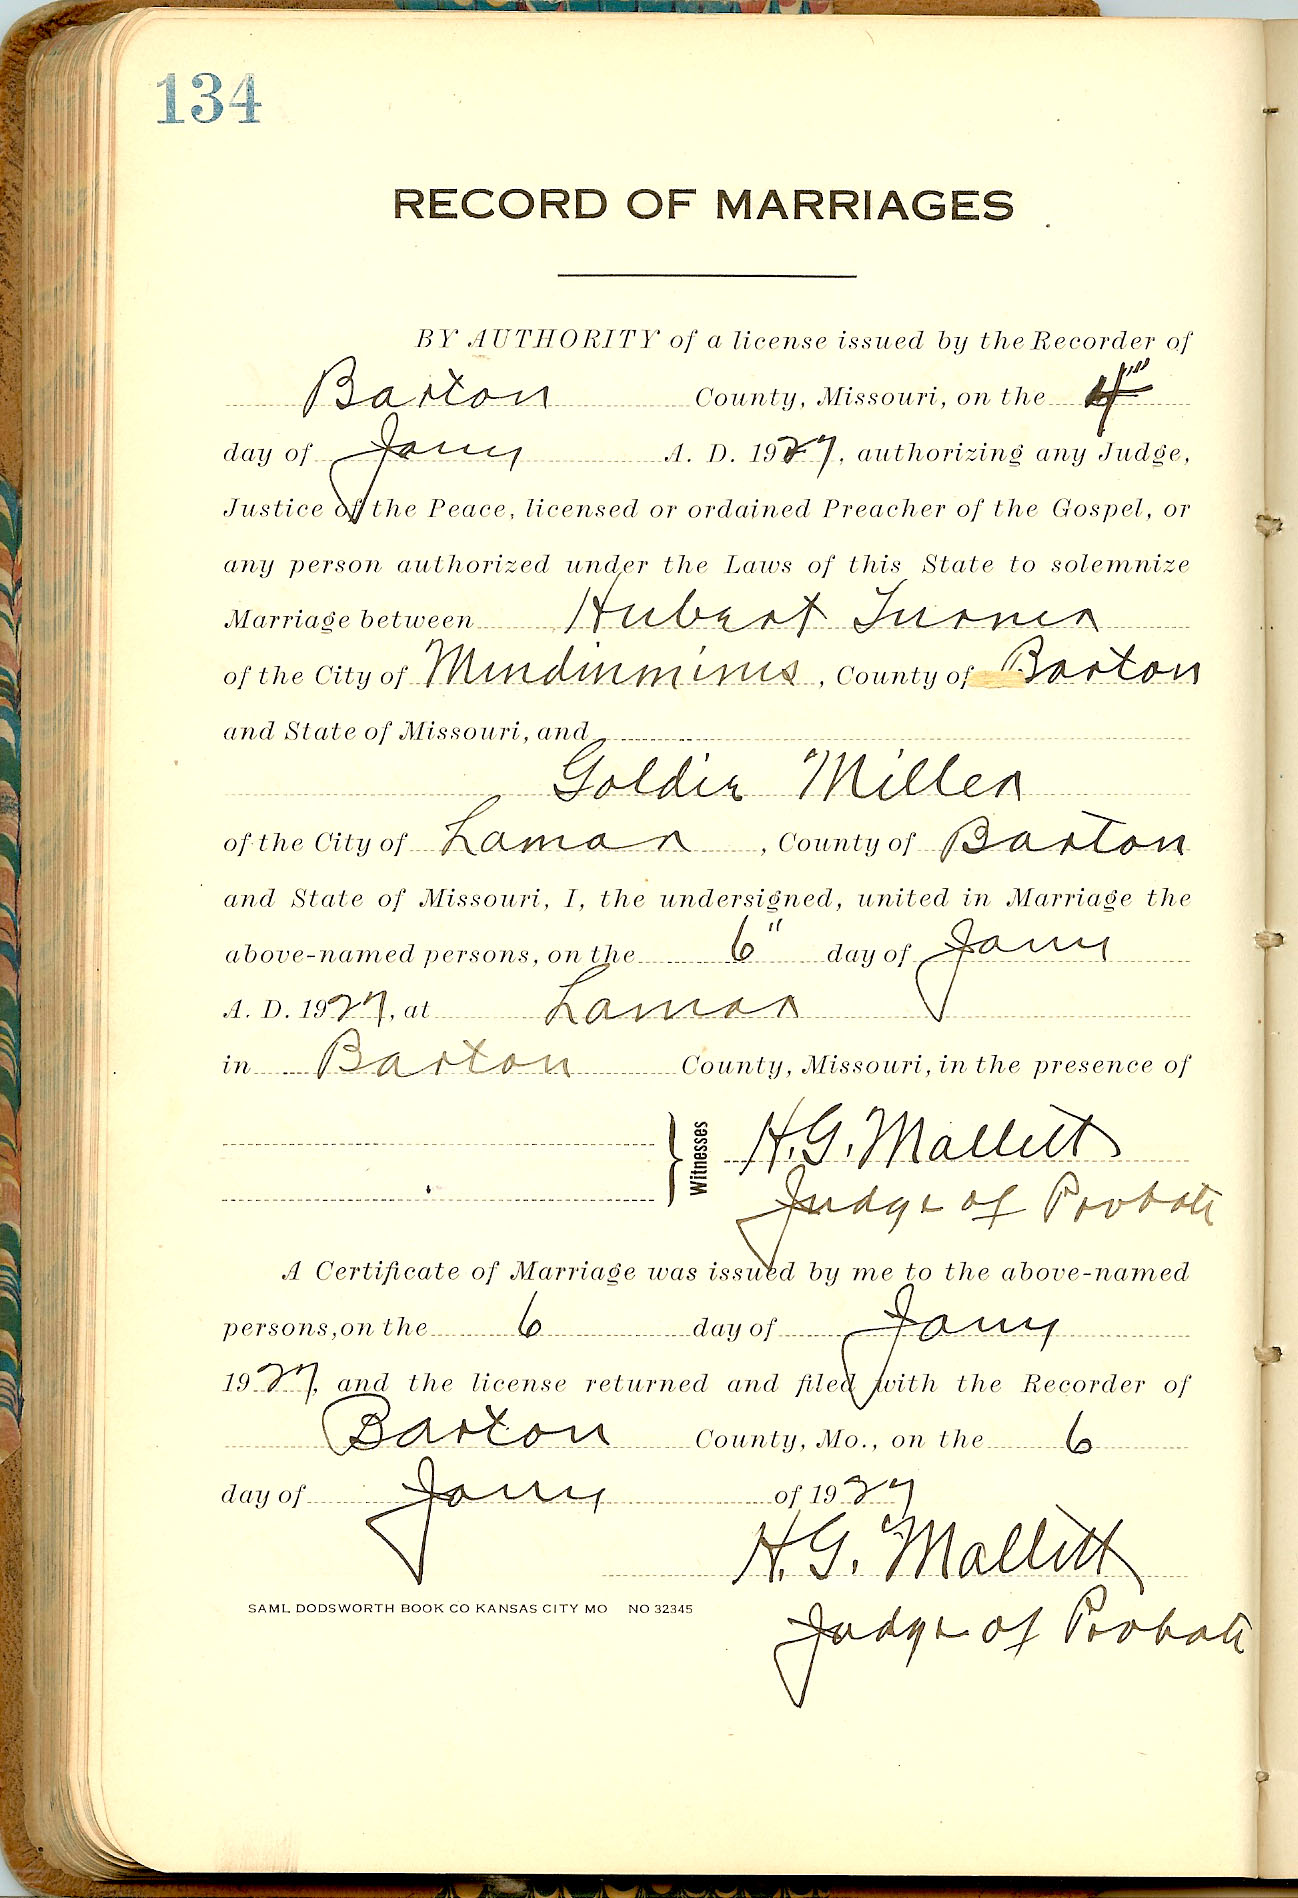 134
RECORD OF MARRIAGES
BY AUTHORITY of a license issued by the Recorder of
Barton County, Missouri, on the 4"
day of Jany A. D. 1927, authorizing any Judge,
Justice of the Peace, licensed or ordained Preacher of the Gospel, or
any person authorized under the Laws of this State to solemnize
Marriage between Hubert Turner
of the City of Mindinmines, County of Barton
and State of Missouri, and
Goldie Miller
of the City of Lamar, County of Barton
and State of Missouri, I, the undersigned, united in Marriage the
above-named persons, on the 6" day of Jany
A. D. 1927, at Lamar
in Barton County, Missouri, in the presence of
Witnesses
H. G. Mallett
Judge of Probate
A Certificate of Marriage was issued by me to the above-named
persons, on the 6 day of Jany
1927, and the license returned and filed with the Recorder of
Barton County, Mo., on the 6
day of Jany of 1927
H. G. Mallett
Judge of Probate
SAML DODSWORTH BOOK CO KANSAS CITY MO NO 32345